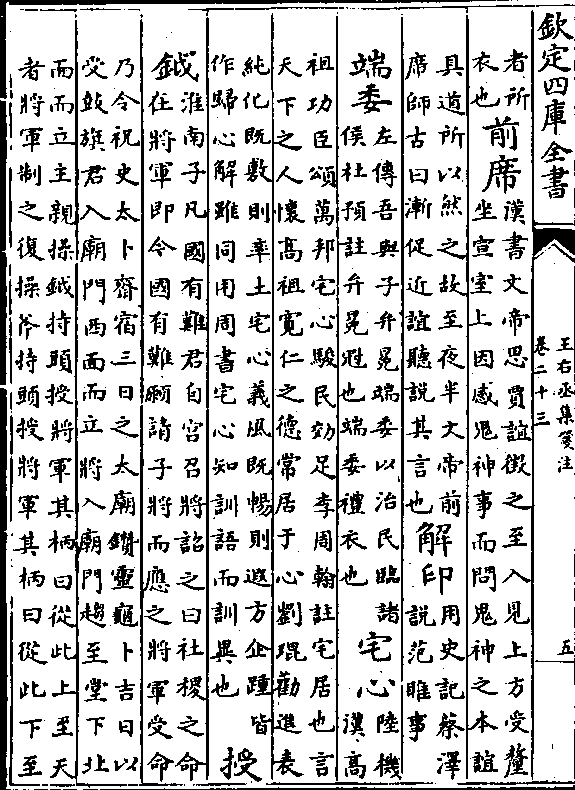 欽定四庫全書
王右丞集箋注
卷二十三
五
者所
衣也
前席
漢書文帝思賈誼徵之至入見上方受釐
坐宣室上因感鬼神事而問鬼神之本誼
具道所以然之故至夜半文帝前
席師古曰漸促近誼聽說其言也
解印
用史記蔡澤
說范雎事
端委
左傳吾與子弁冕端委以治民臨諸
侯杜預註弁冕冠也端委禮衣也
宅心
陸機
漢高
祖功臣頌萬邦宅心駿民効足李周翰註宅居也言
天下之人懷高祖寬仁之德常居于心劉琨勸進表
純化既敷則率土宅心義風既暢則遐方企踵皆
作歸心解雖同用周書宅心知訓語而訓異也
授
鉞
淮南子凡國有難君自宮召將詔之曰社稷之命
在將軍即今國有難願請子將而應之將軍受命
乃令祝史太卜齋宿三日之太廟鑽靈龜卜吉日以
受鼓旗君入廟門西面而立將入廟門趨至堂下北
面而立主親操鉞持頭授將軍其柄曰從此上至天
者將軍制之復操斧持頭授將軍其柄曰從此下至